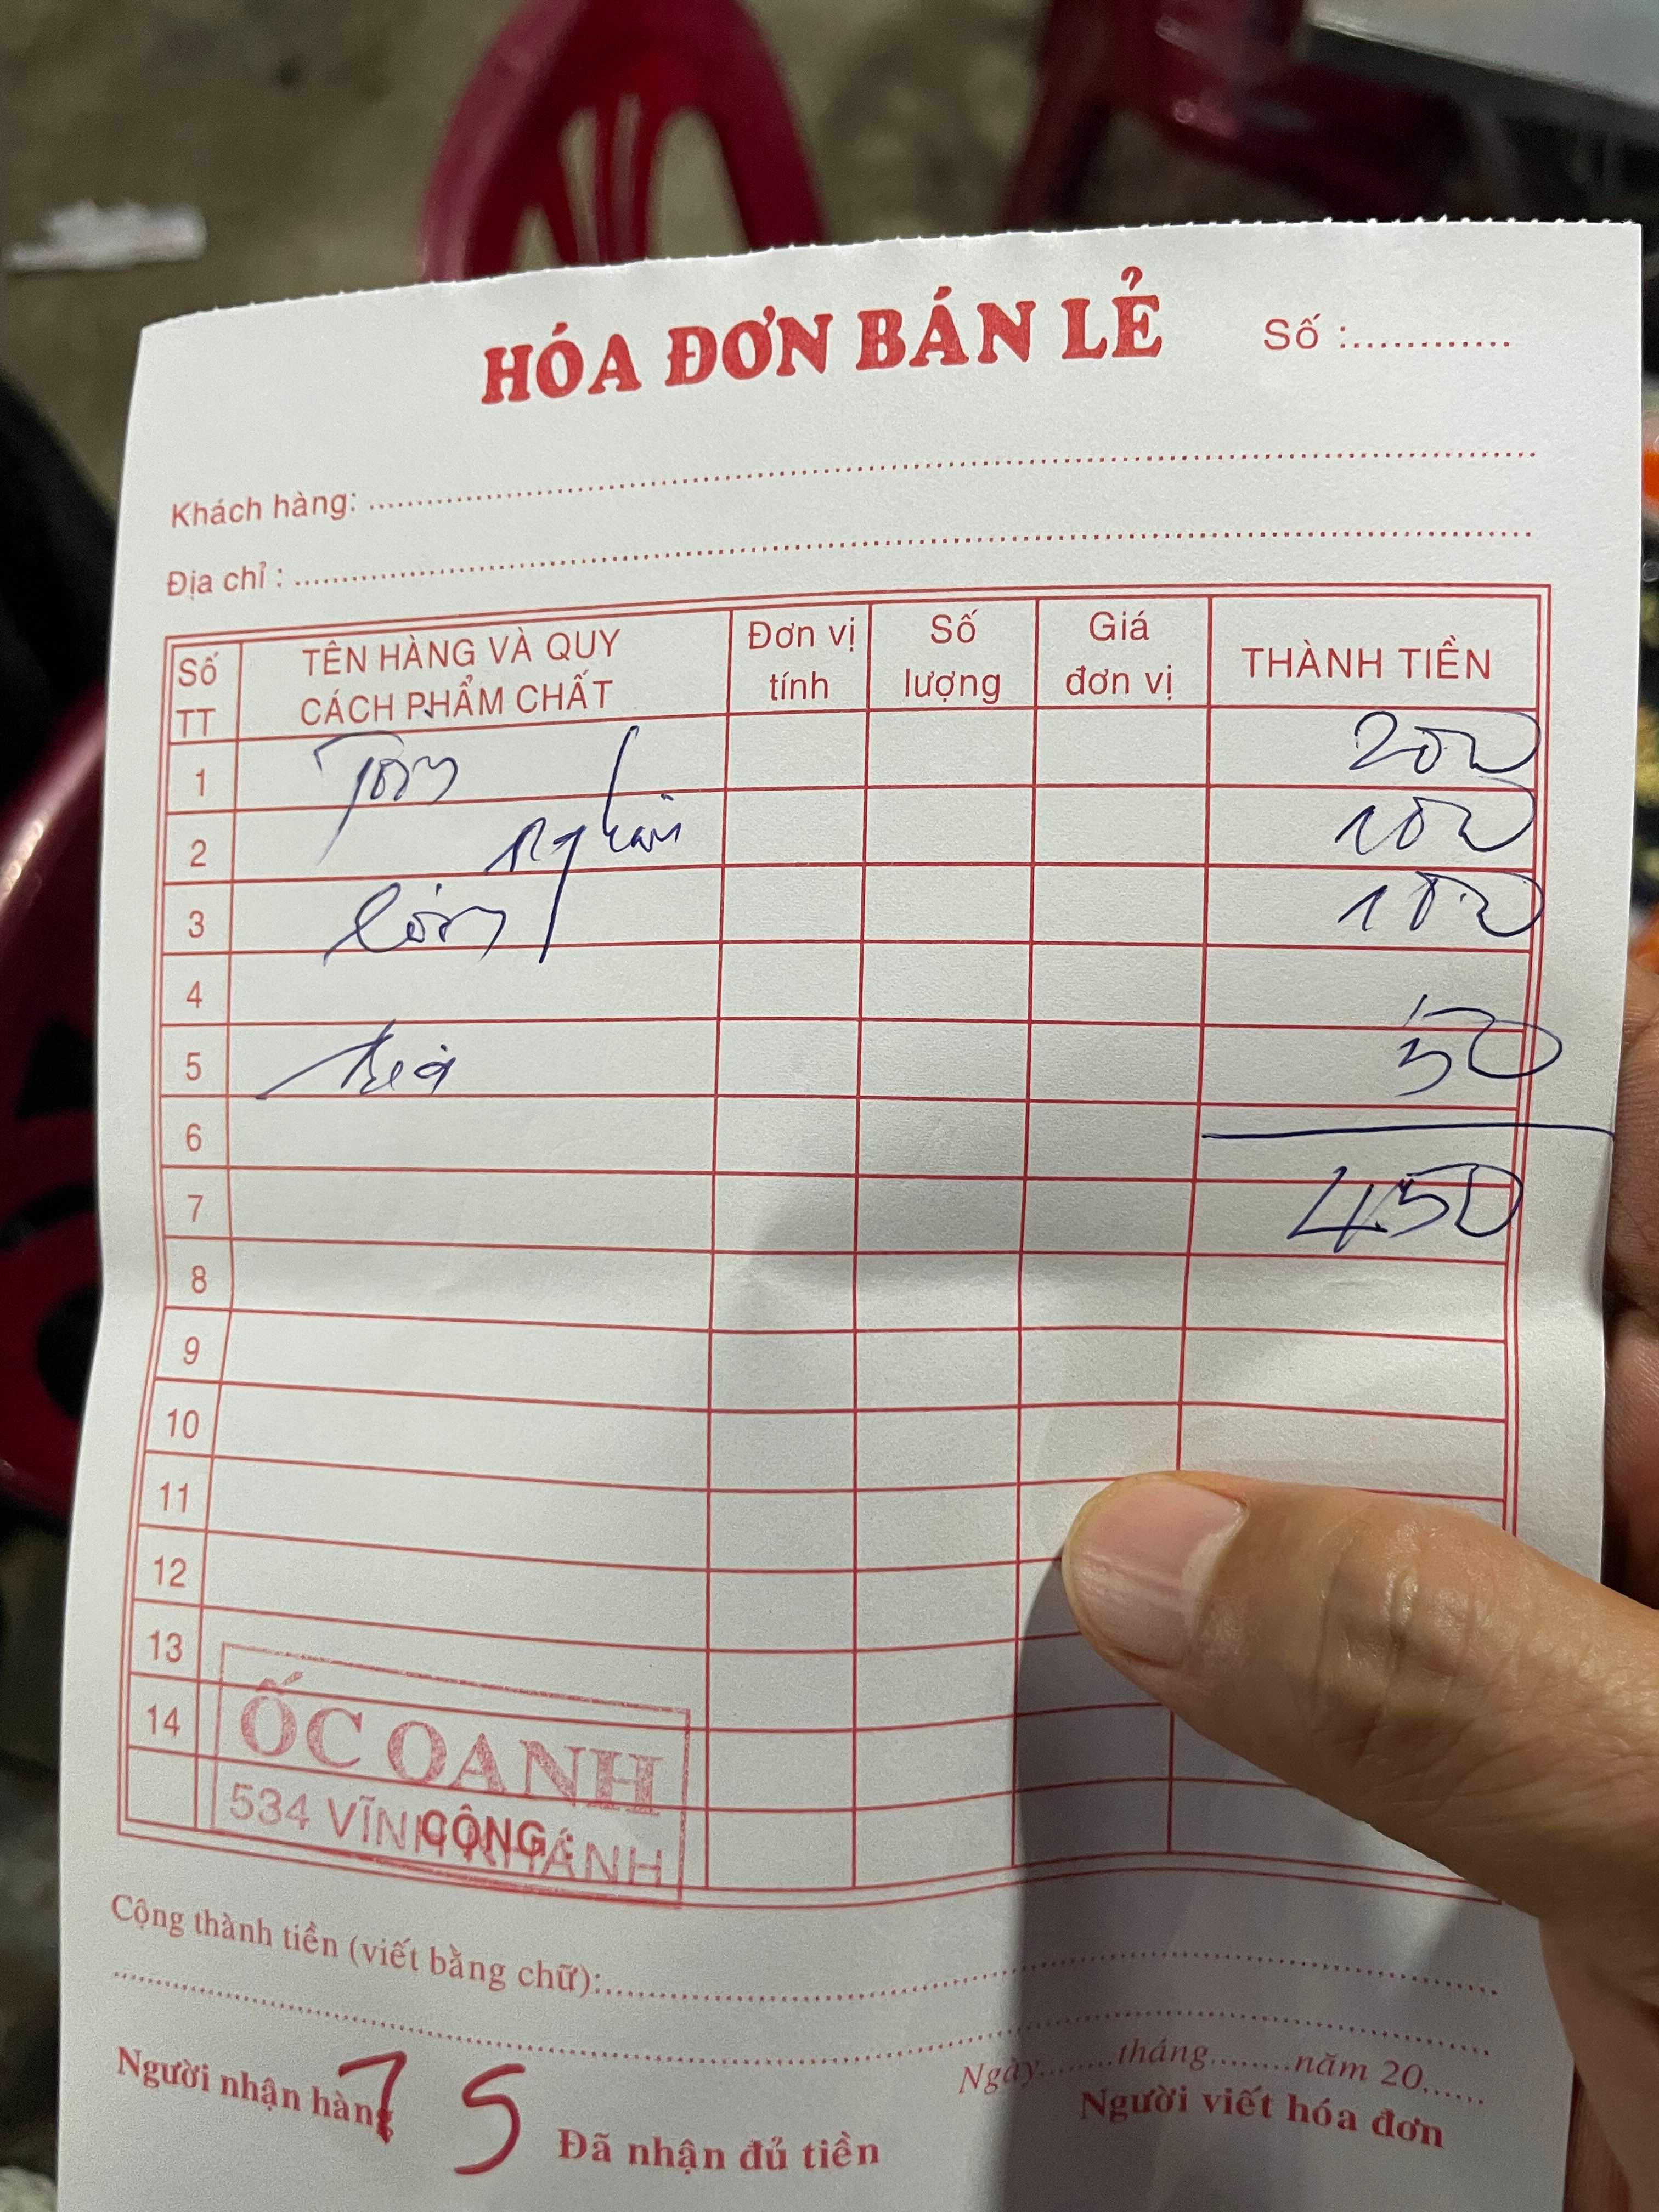 HÓA ĐƠN BÁN LẺ Số :.............
Khách hàng: ..........
Địa chỉ : ..........
Số TT TÊN HÀNG VÀ QUY CÁCH PHẨM CHẤT Đơn vị tính Số lượng Giá đơn vị THÀNH TIỀN
1 Tôm 200
2 nghêu 100
3 100
4
5 50
6
7 450
8
9
10
11
12
13
14
ỐC OANH
534 VĨNH KHÁNH
CỘNG :
Cộng thành tiền (viết bằng chữ):..........
Ngày........tháng........năm 20......
Người nhận hàng Đã nhận đủ tiền Người viết hóa đơn
75